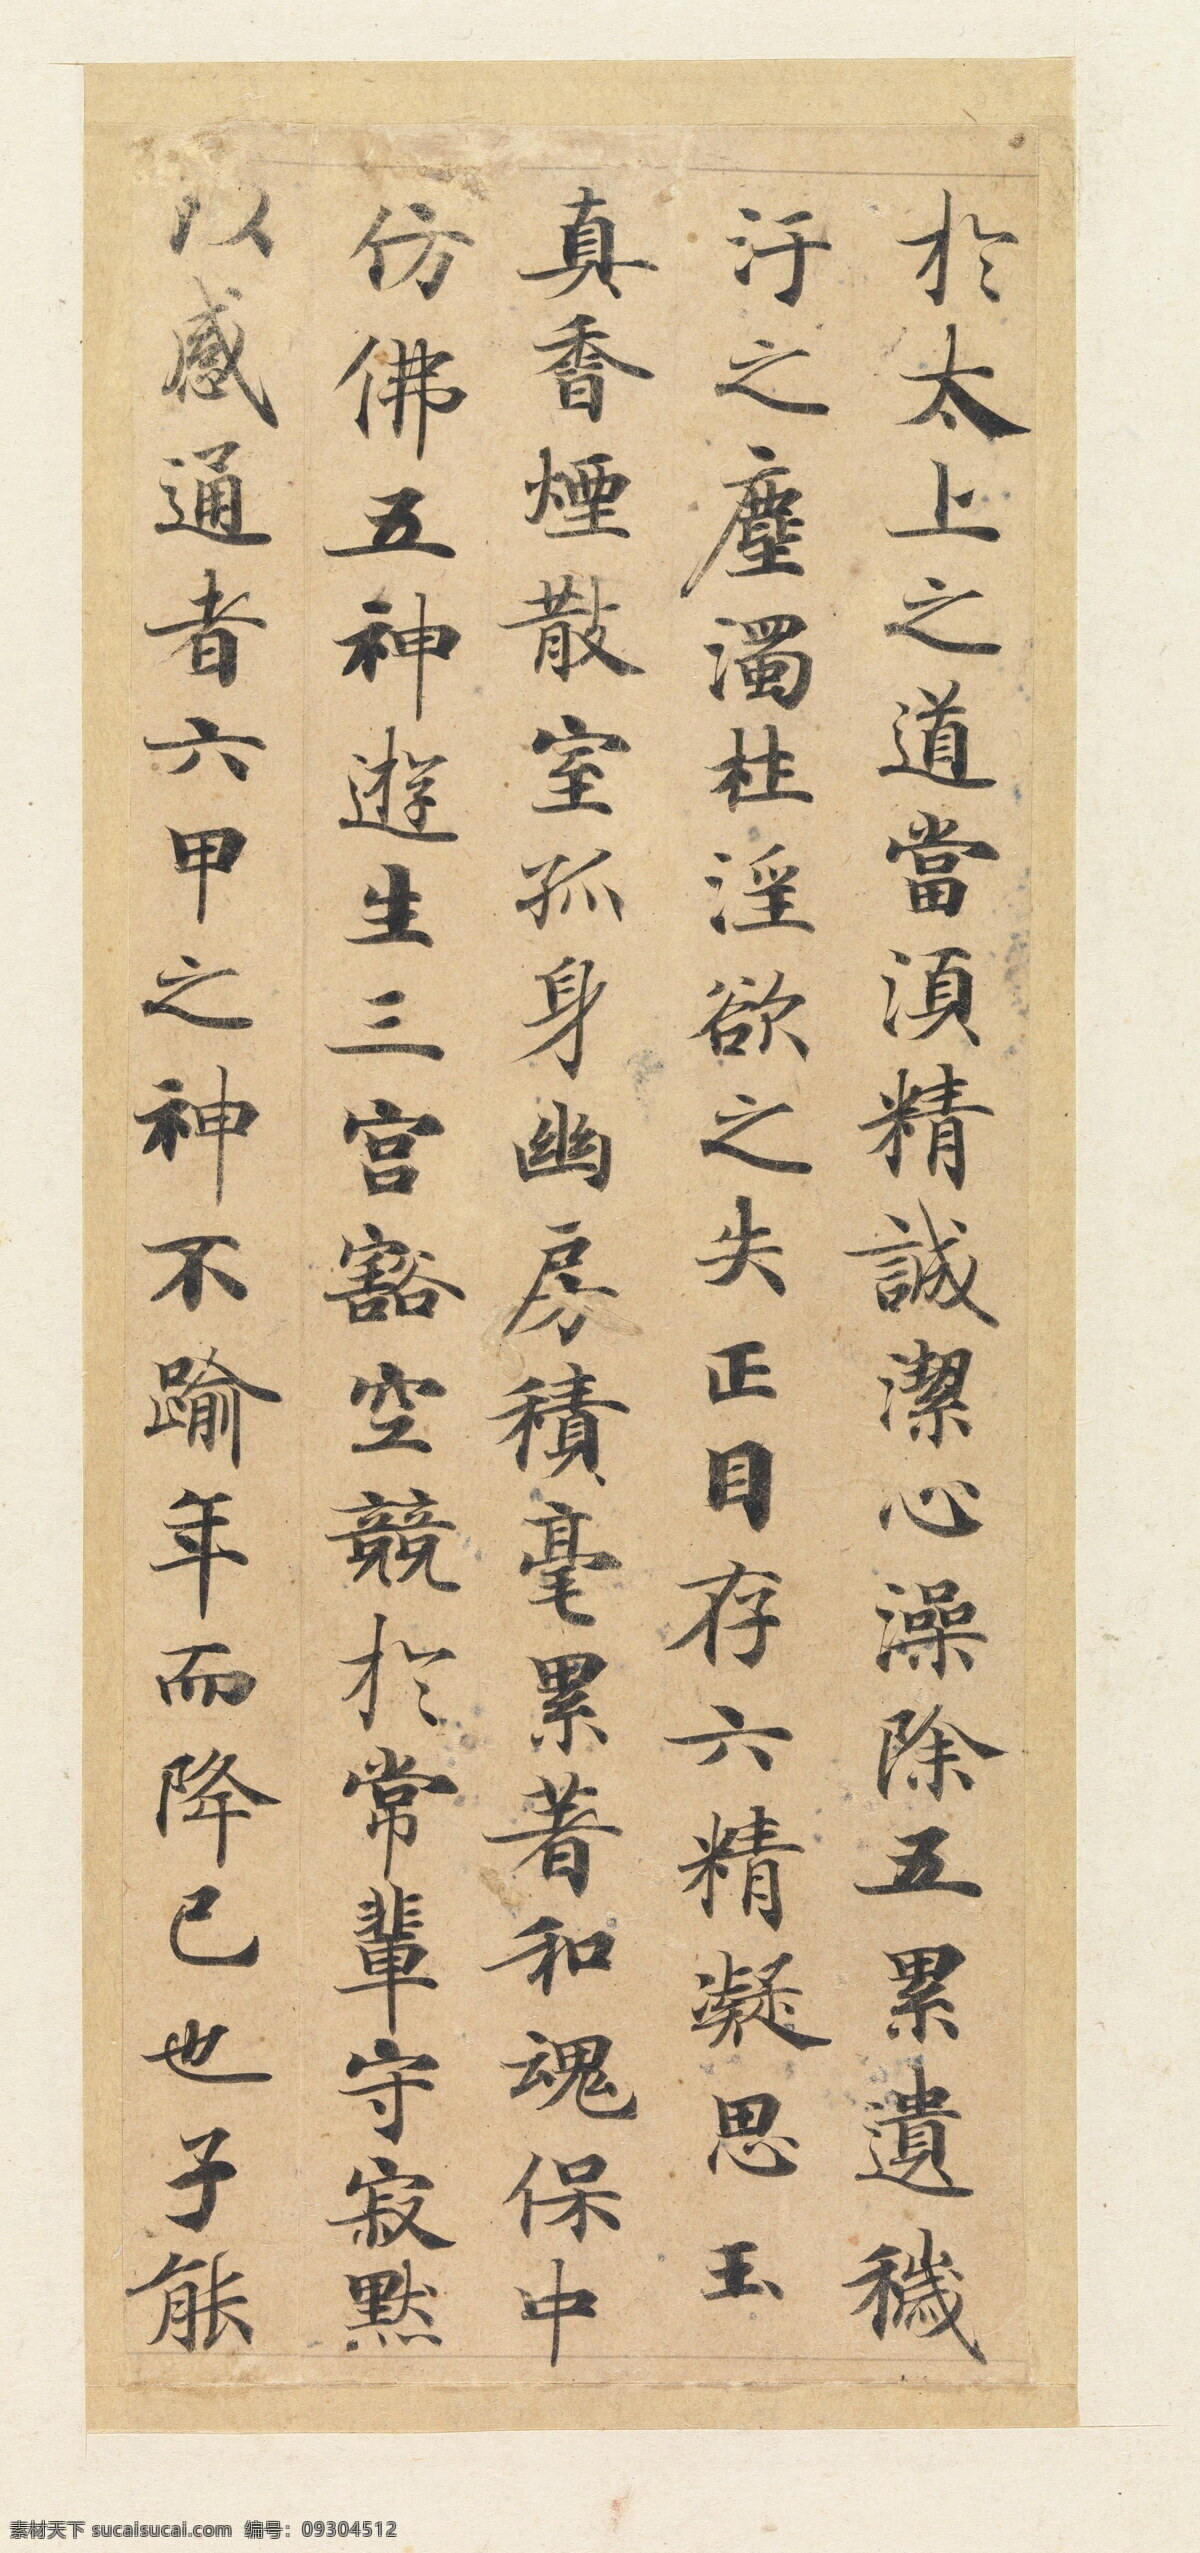 於太上之道當須精誠潔心澡除五累遺穢
汙之塵濁杜淫欲之失正目存六精凝思玉
真香煙散室孤身幽房積毫累著和魂保中
仿佛五神遊生三宮豁空競於常輩守寂默
以感通者六甲之神不踰年而降已也子能
素材天下 sucaisucai.com 编号：09304512